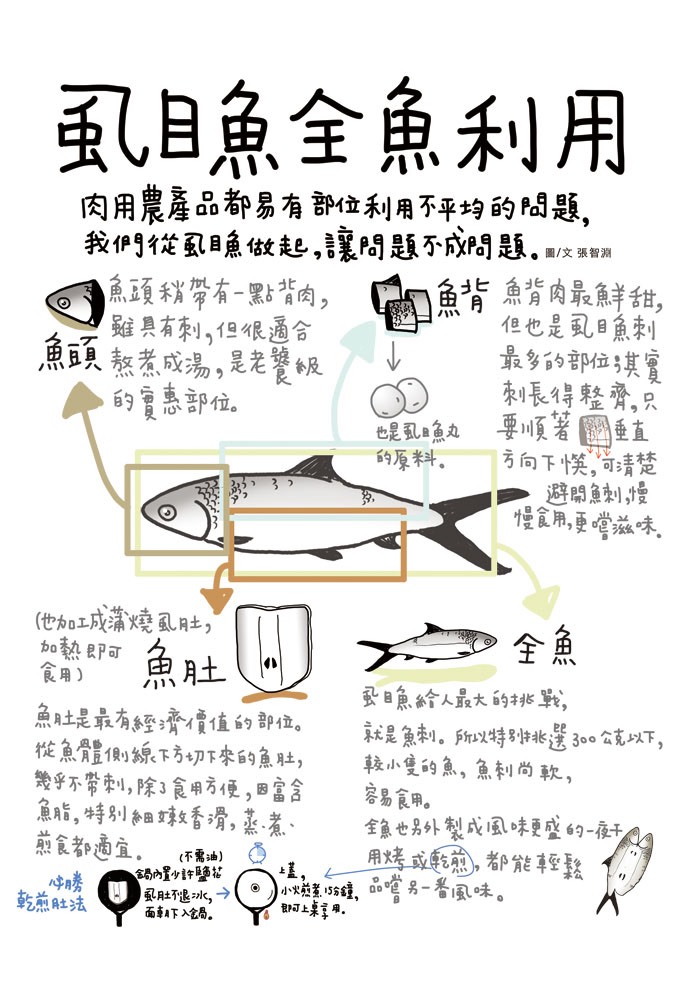 虱目魚全魚利用
肉用農產品都易有部位利用不平均的問題，
我們從虱目魚做起，讓問題不成問題。
圖/文 張智淵
魚頭
魚頭稍帶有一點背肉，
雖具有刺，但很適合
熬煮成湯，是老饕級
的實惠部位。
魚背
也是虱目魚丸
的原料。
魚背肉最鮮甜，
但也是虱目魚刺
最多的部位；其實
刺長得整齊，只
要順著垂直
方向下筷，可清楚
避開魚刺，慢
慢食用，更嚐滋味。
(也加工成蒲燒虱肚，
加熱即可
食用)
魚肚
魚肚是最有經濟價值的部位。
從魚體側線下方切下來的魚肚，
幾乎不帶刺，除了食用方便，因富含
魚脂，特別細嫩香滑，蒸、煮、
煎食都適宜。
全魚
虱目魚給人最大的挑戰，
就是魚刺。所以特別挑選300公克以下，
較小隻的魚，魚刺尚軟，
容易食用。
全魚也另外製成風味更盛的一夜干
用烤或乾煎，都能輕鬆
品嚐另一番風味。
必勝
乾煎肚法
(不需油)
鍋內置少許鹽花
虱肚不退冰，
面朝下入鍋。
上蓋，
小火煎煮15分鐘，
即可上桌享用。